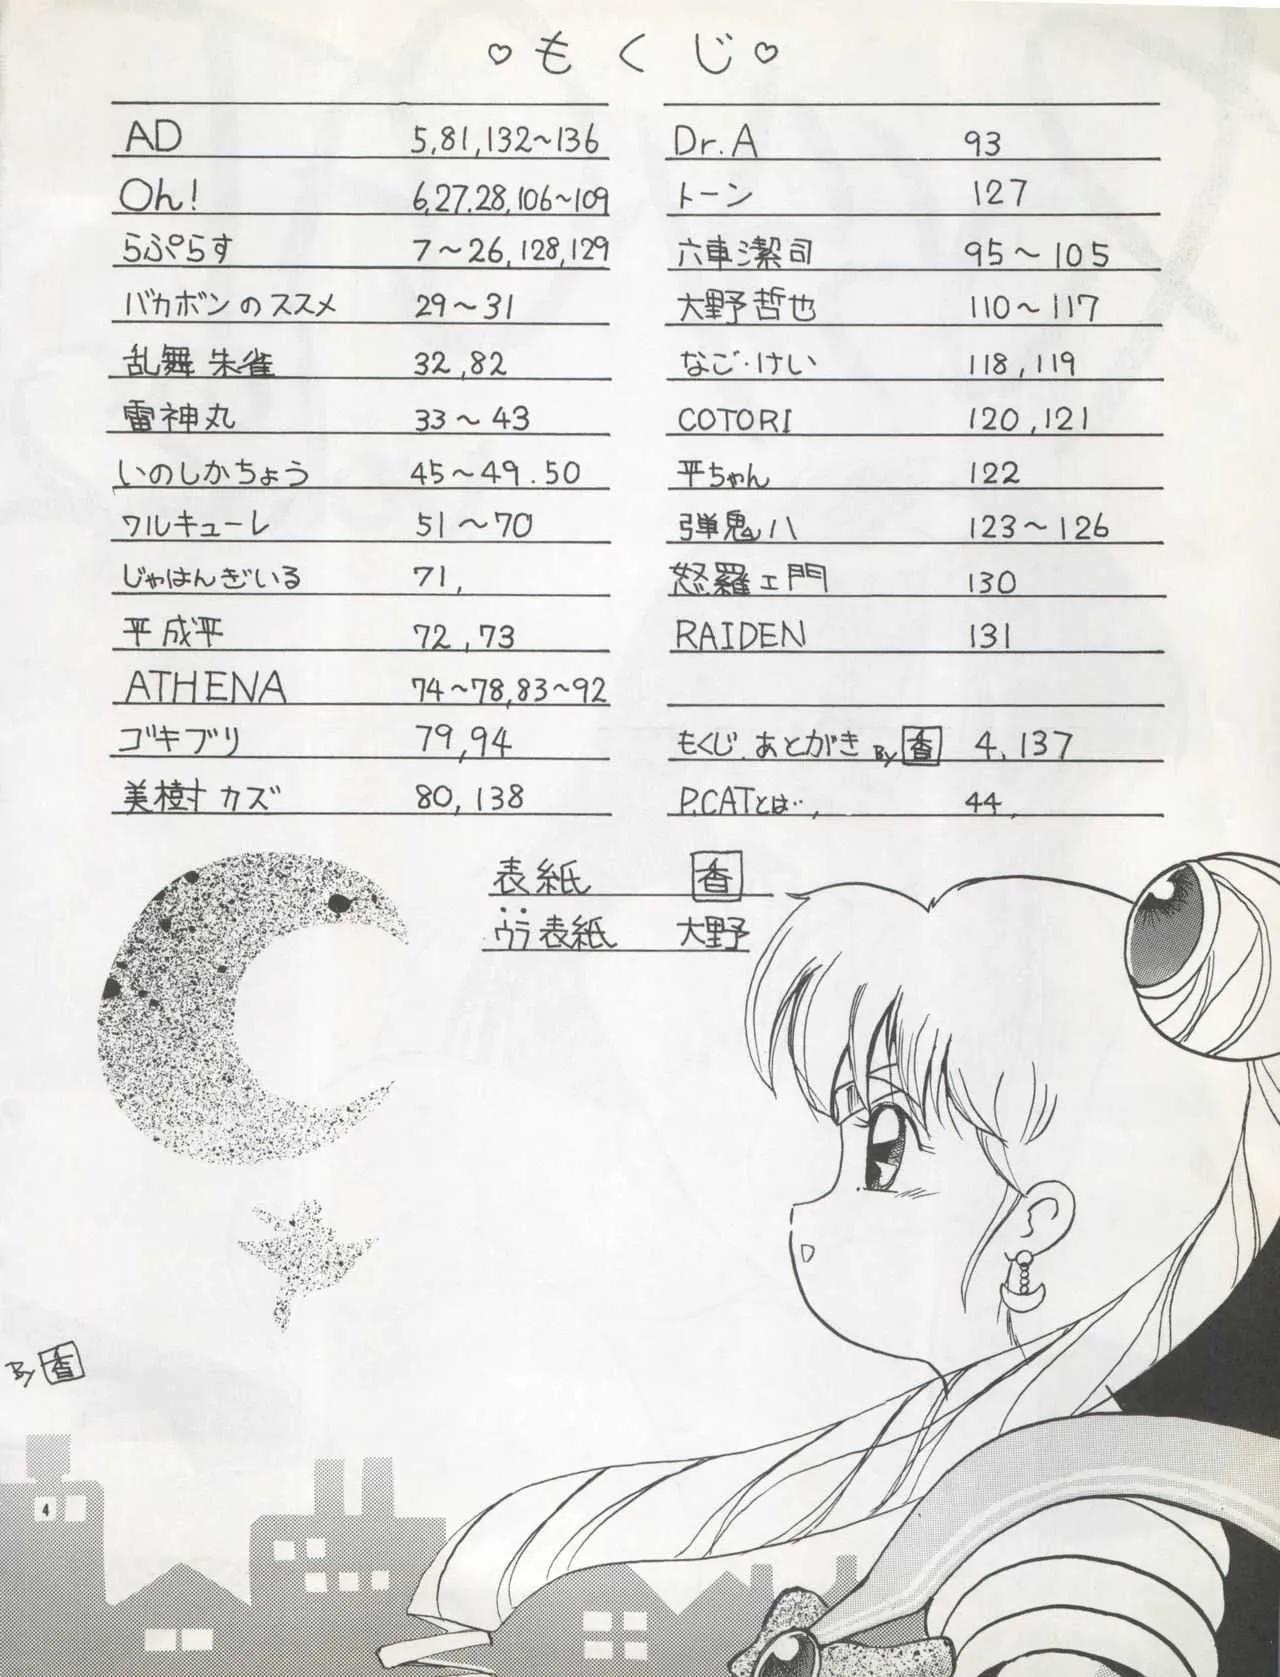 ♡もくじ♡
AD 5,81,132〜136
Oh! 6,27.28,106〜109
らぷらす 7〜26,128,129
バカボンのススメ 29〜31
乱舞 朱雀 32,82
雷神丸 33〜43
いのしかちょう 45〜49.50
ワルキューレ 51〜70
じゃはんぎいる 71,
平成平 72,73
ATHENA 74〜78,83〜92
ゴキブリ 79,94
美樹カズ 80,138
Dr.A 93
トーン 127
六車潔司 95〜105
大野哲也 110〜117
なご・けい 118,119
COTORI 120,121
平ちゃん 122
弾鬼八 123〜126
怒羅ェ門 130
RAIDEN 131
もくじ.あとがき By 香 4,137
P.CATとは…, 44,
表紙 香
ウラ表紙 大野
By 香
4